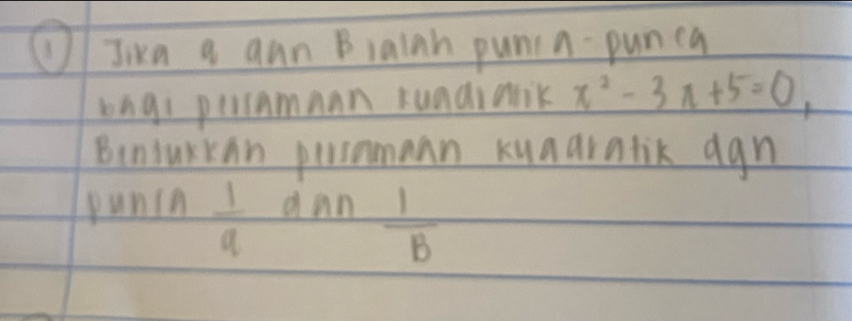 ① Jika a dan B ialah punca-punca
bagi persamaan kuadratik x² - 3x + 5 = 0,
Bentukkan persamaan kuadratik dgn
punca 1/a dan 1/B